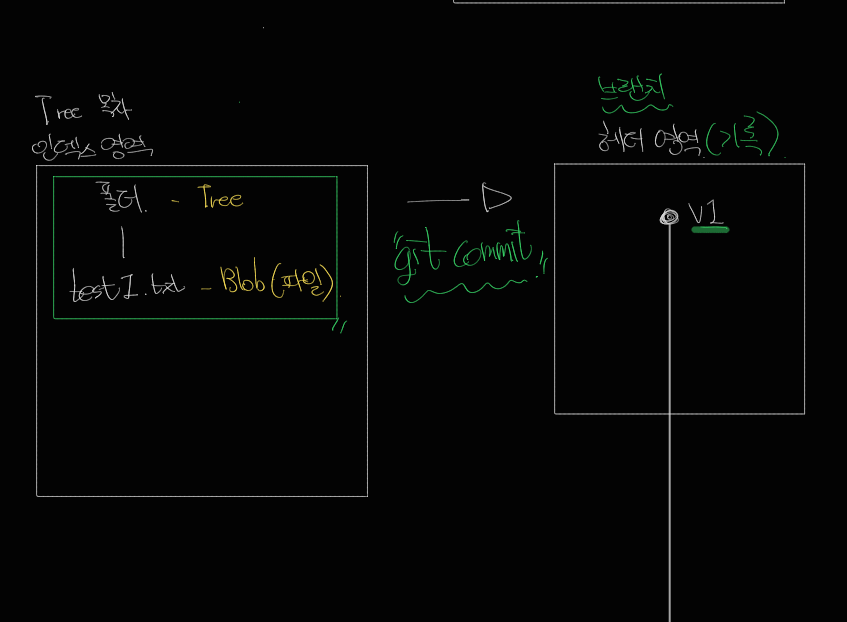 Tree 목차
인덱스 영역
폴더. - Tree
test1.txt - Blob(파일)
"git commit"
브랜치
헤더 영역(기록)
V1